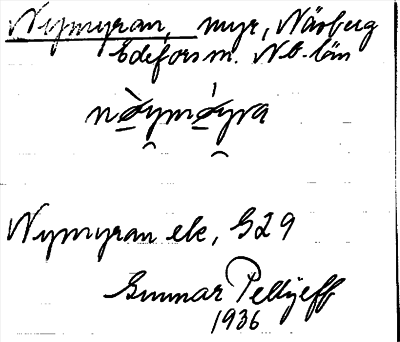 Nymyran, myr, Närberg
Edefors sn. N.B. län
nø̀ymǿyra
Nymyran ek, G29
Gunnar Pellijeff
1936